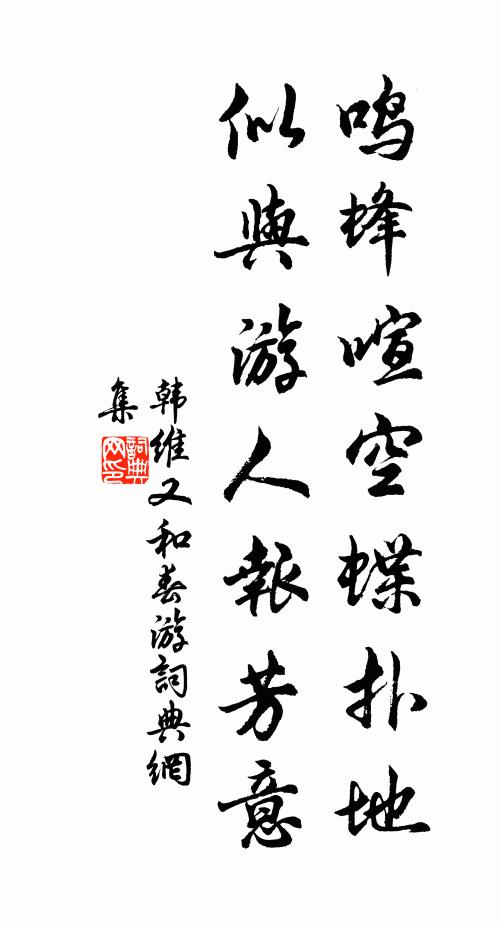 鸣蜂喧空蝶扑地
似與游人報芳意
韩维又和春游詞典網
集
詞典
网印